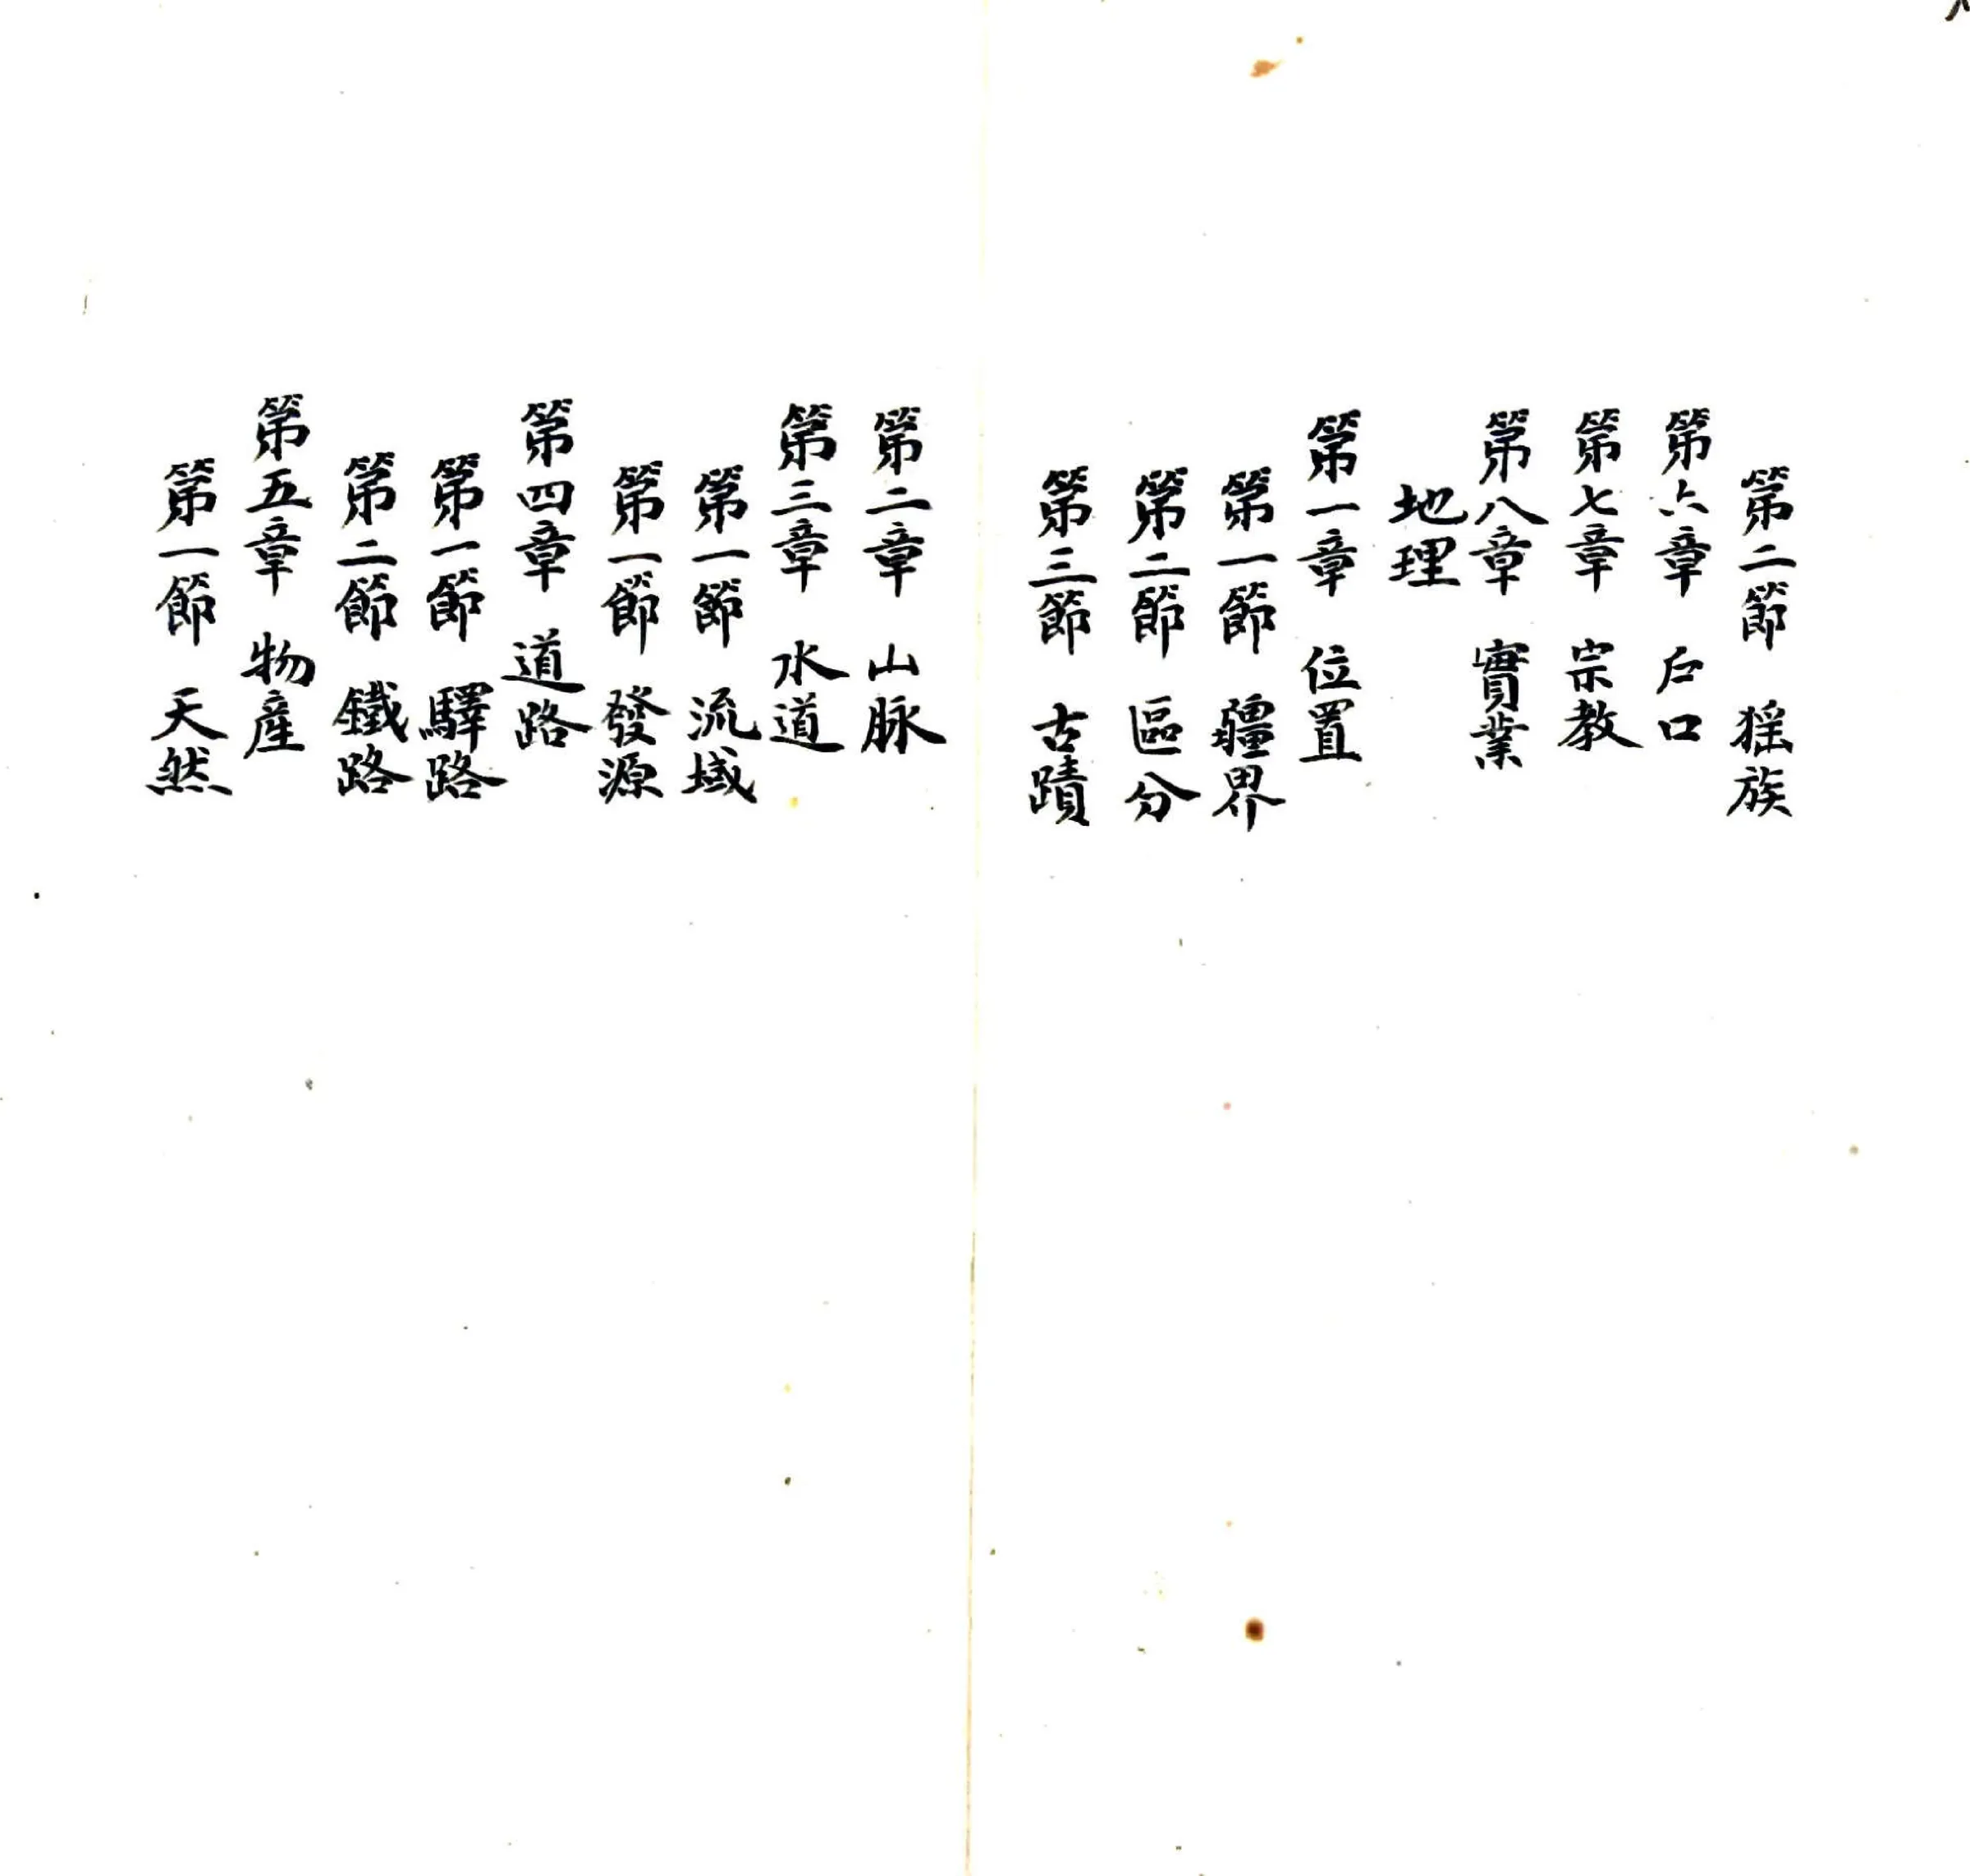 第二節　猺族
第六章　戶口
第七章　宗教
第八章　實業
地理
第一章　位置
第一節　疆界
第二節　區分
第三節　古蹟
第二章　山脉
第三章　水道
第一節　流域
第一節　發源
第四章　道路
第一節　驛路
第二節　鐵路
第五章　物產
第一節　天然